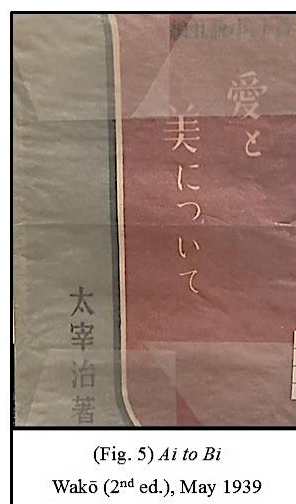 愛と
美について
太宰治著
(Fig. 5) Ai to Bi
Wakō (2nd ed.), May 1939